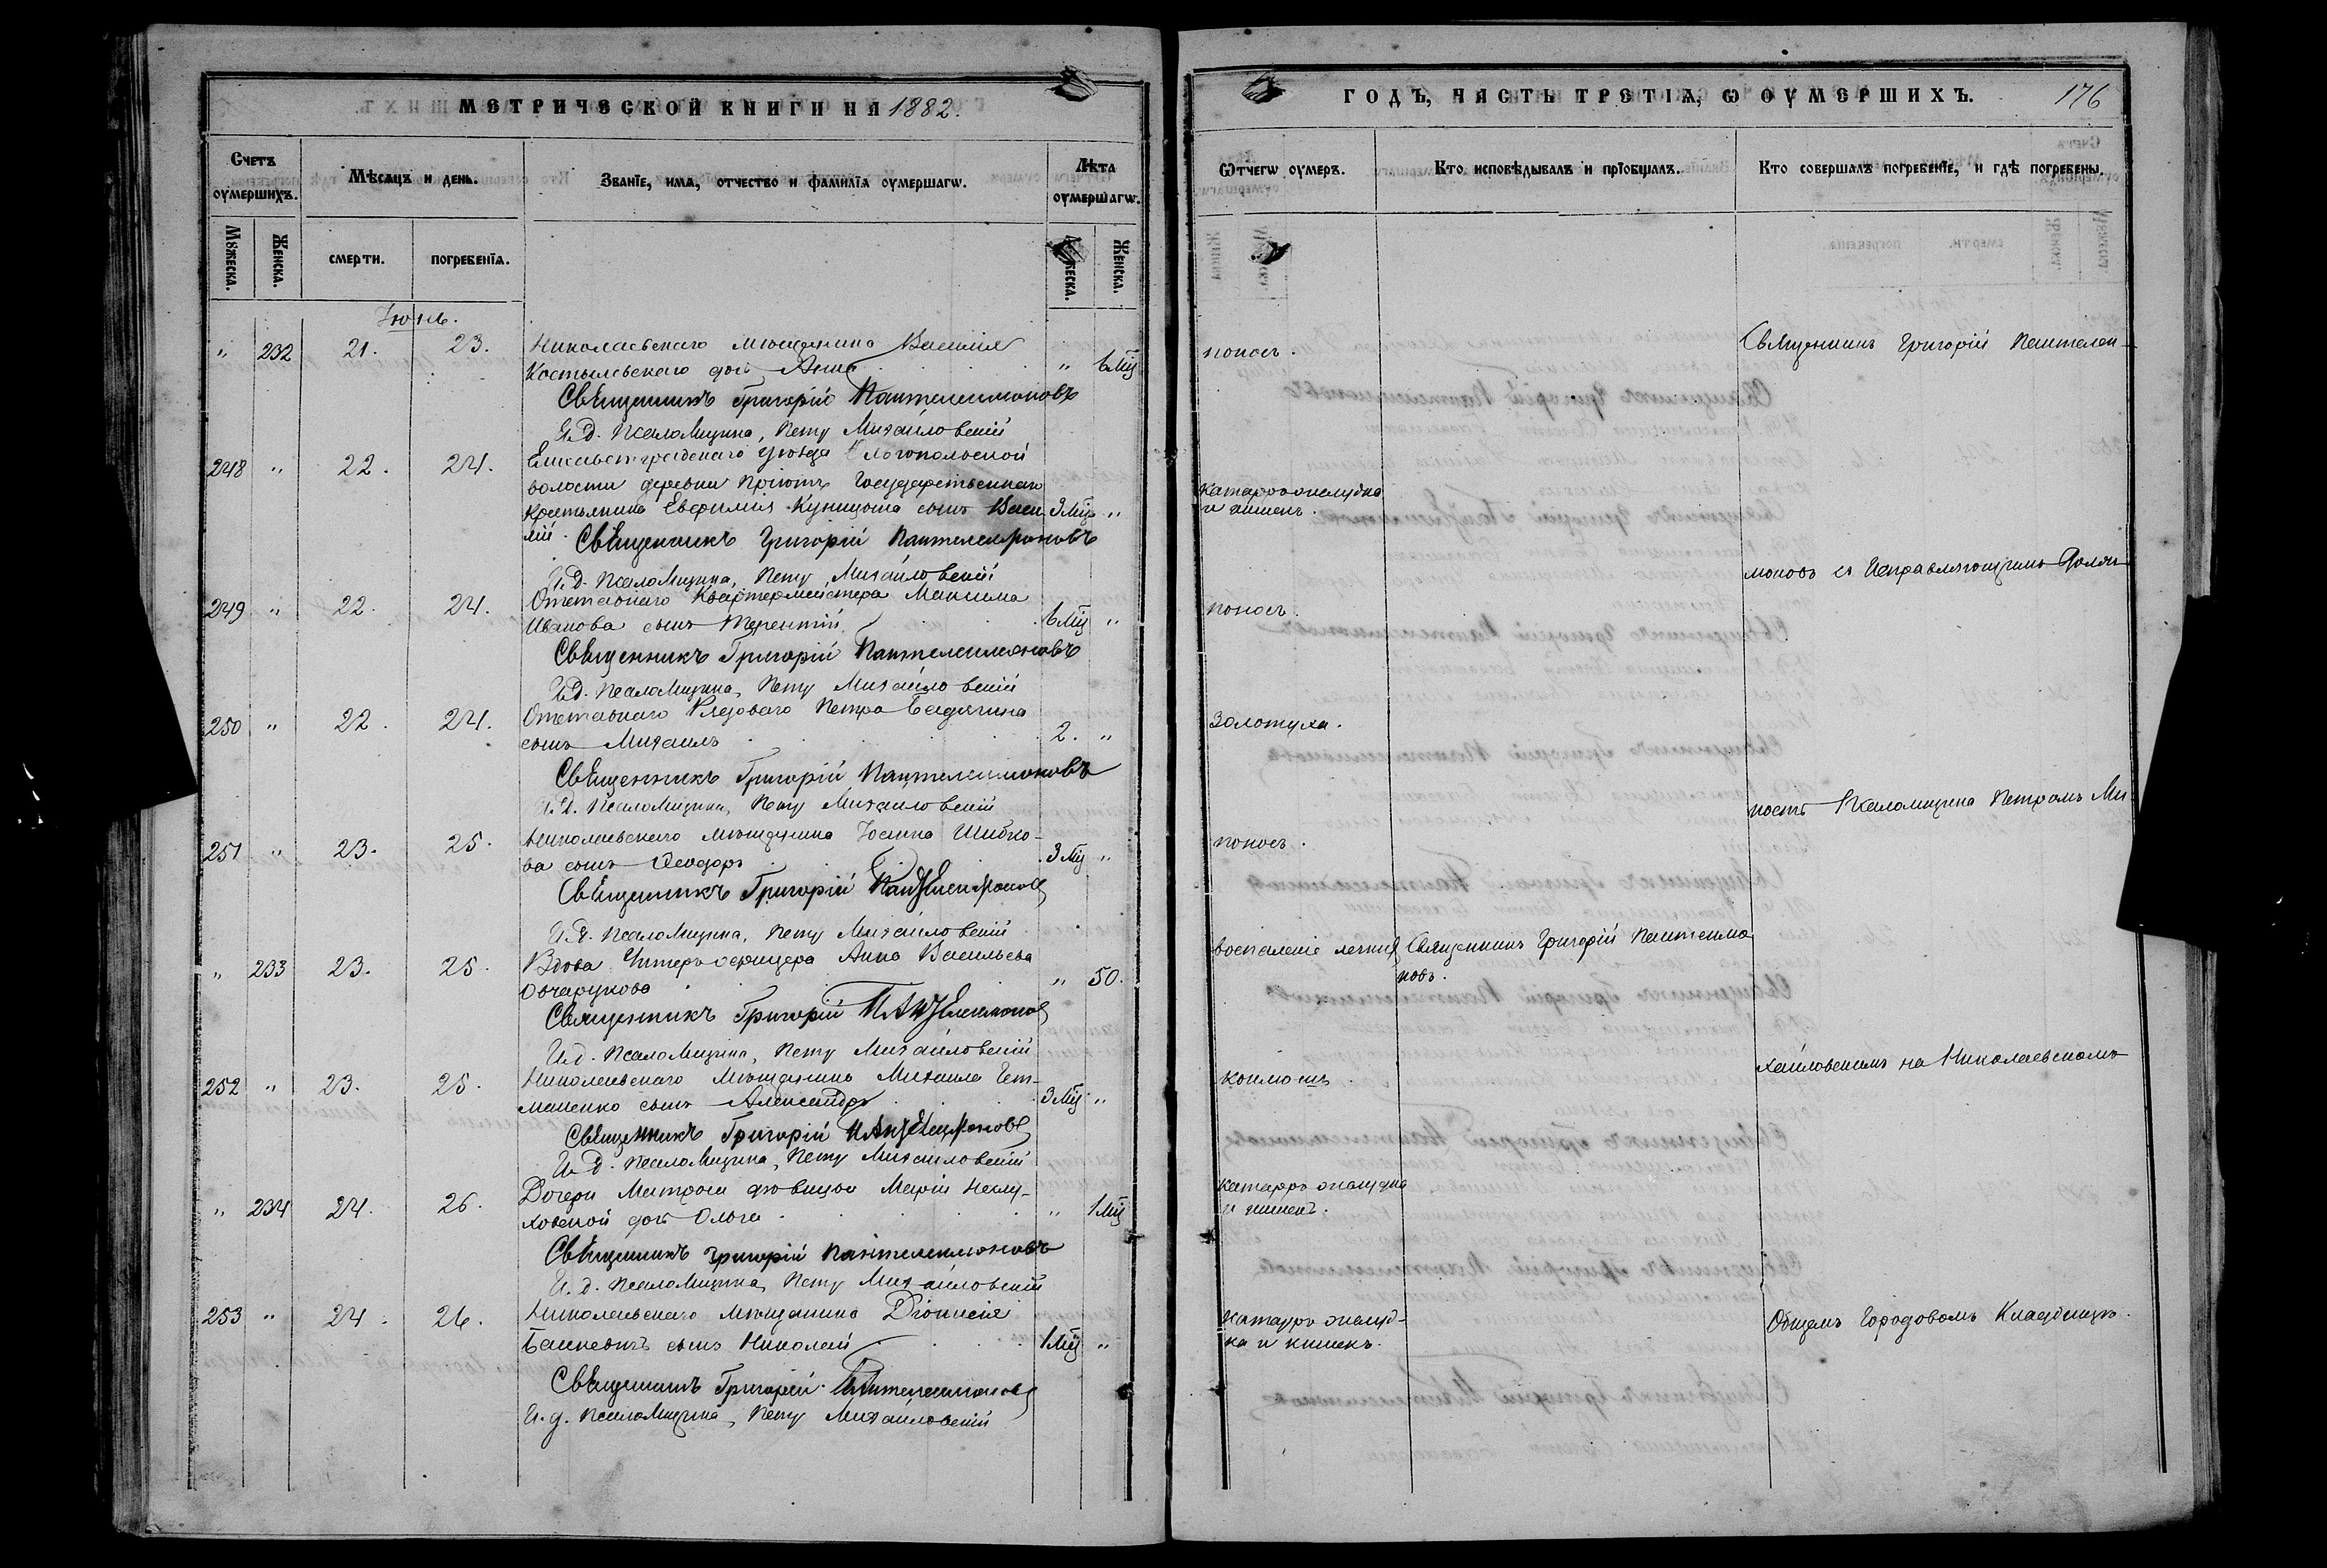 МЕТРИЧЕСКОЙ КНИГИ НА 1882.
Счетъ оумершихъ.
Мѣсяцъ и день.
Званїе, имя, отчество и фамилїя оумершагѡ.
Лѣта оумершагѡ.
Мꙋжеска.
Женска.
смерти.
погребенїя.
Женска.
Іюнь.
" 232 21. 23. Николаевскаго мѣщанина Василія
Костылевскаго дочь Анна " 6 мц
Священникъ Григорій Пантелеимоновъ
И.д. Псаломщика, Петръ Михайловскій
248 " 22. 24. Елисаветградскаго уѣзда
волости деревни Пріютъ Государственнаго
крестьянина Евфимія Куницина сынъ Васи- 3 мц "
лій. Священникъ Григорій Пантелеимоновъ
И.д. Псаломщика, Петръ Михайловскій
249 " 22. 24. Отставнаго Квартермейстера Максима
Иванова сынъ Терентій 6 мц "
Священникъ Григорій Пантелеимоновъ
И.д. Псаломщика, Петръ Михайловскій
250 " 22. 24. Отставнаго Рядоваго Петра
сынъ Михаилъ 2. "
Священникъ Григорій Пантелеимоновъ
И.д. Псаломщика, Петръ Михайловскій
251 " 23. 25. Николаевскаго мѣщанина Іоанна Шибко-
ва сынъ Ѳеодоръ 3 мц "
Священникъ Григорій Пантелеимоновъ
И.д. Псаломщика, Петръ Михайловскій
" 233 23. 25. Вдова Унтеръ-офицера Анна Васильева
Овчарукова " 50.
Священникъ Григорій Пантелеимоновъ
И.д. Псаломщика, Петръ Михайловскій
252 " 23. 25. Николаевскаго Мѣщанина Михаила Гет-
маненко сынъ Александръ 3 мц "
Священникъ Григорій Пантелеимоновъ
И.д. Псаломщика, Петръ Михайловскій
" 234 24. 26. Дочери Матроса дѣвицы Маріи
дочь Ольга " 1 мц
Священникъ Григорій Пантелеимоновъ
И.д. Псаломщика, Петръ Михайловскій
253 " 24. 26. Николаевскаго мѣщанина Діонисія
Банкевичъ сынъ Николай 1 мц "
Священникъ Григорій Пантелеимоновъ
И.д. Псаломщика, Петръ Михайловскій
ГОДЪ, ЧАСТЬ ТРЕТІЯ, Ѡ ОУМЕРШИХЪ. 176
Ѿтчегѡ оумеръ.
Кто исповѣдывалъ и прїобщалъ.
Кто совершалъ погребенїе, и гдѣ погребены.
поносъ. Священникъ Григорій Пантелеи-
катарръ желудка
и кишекъ.
моновъ съ Исправляющимъ Долж-
поносъ.
золотуха.
ность Псаломщика Петромъ Ми-
поносъ.
воспаленіе легкихъ Священникъ Григорій Пантелеимо
новъ.
хайловскимъ на Николаевскомъ
коклюшъ.
катарръ желудка
и кишекъ.
катарръ желуд-
ка и кишекъ.
Общемъ Городовомъ Кладбищѣ.